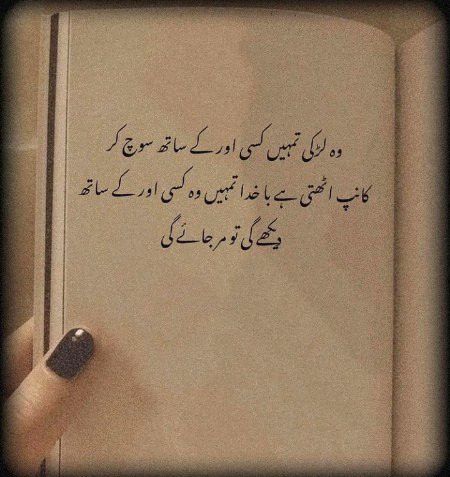 وہ لڑکی تمہیں کسی اور کے ساتھ سوچ کر
کانپ اٹھتی ہے باخدا تمہیں وہ کسی اور کے ساتھ
دیکھے گی تو مر جائے گی